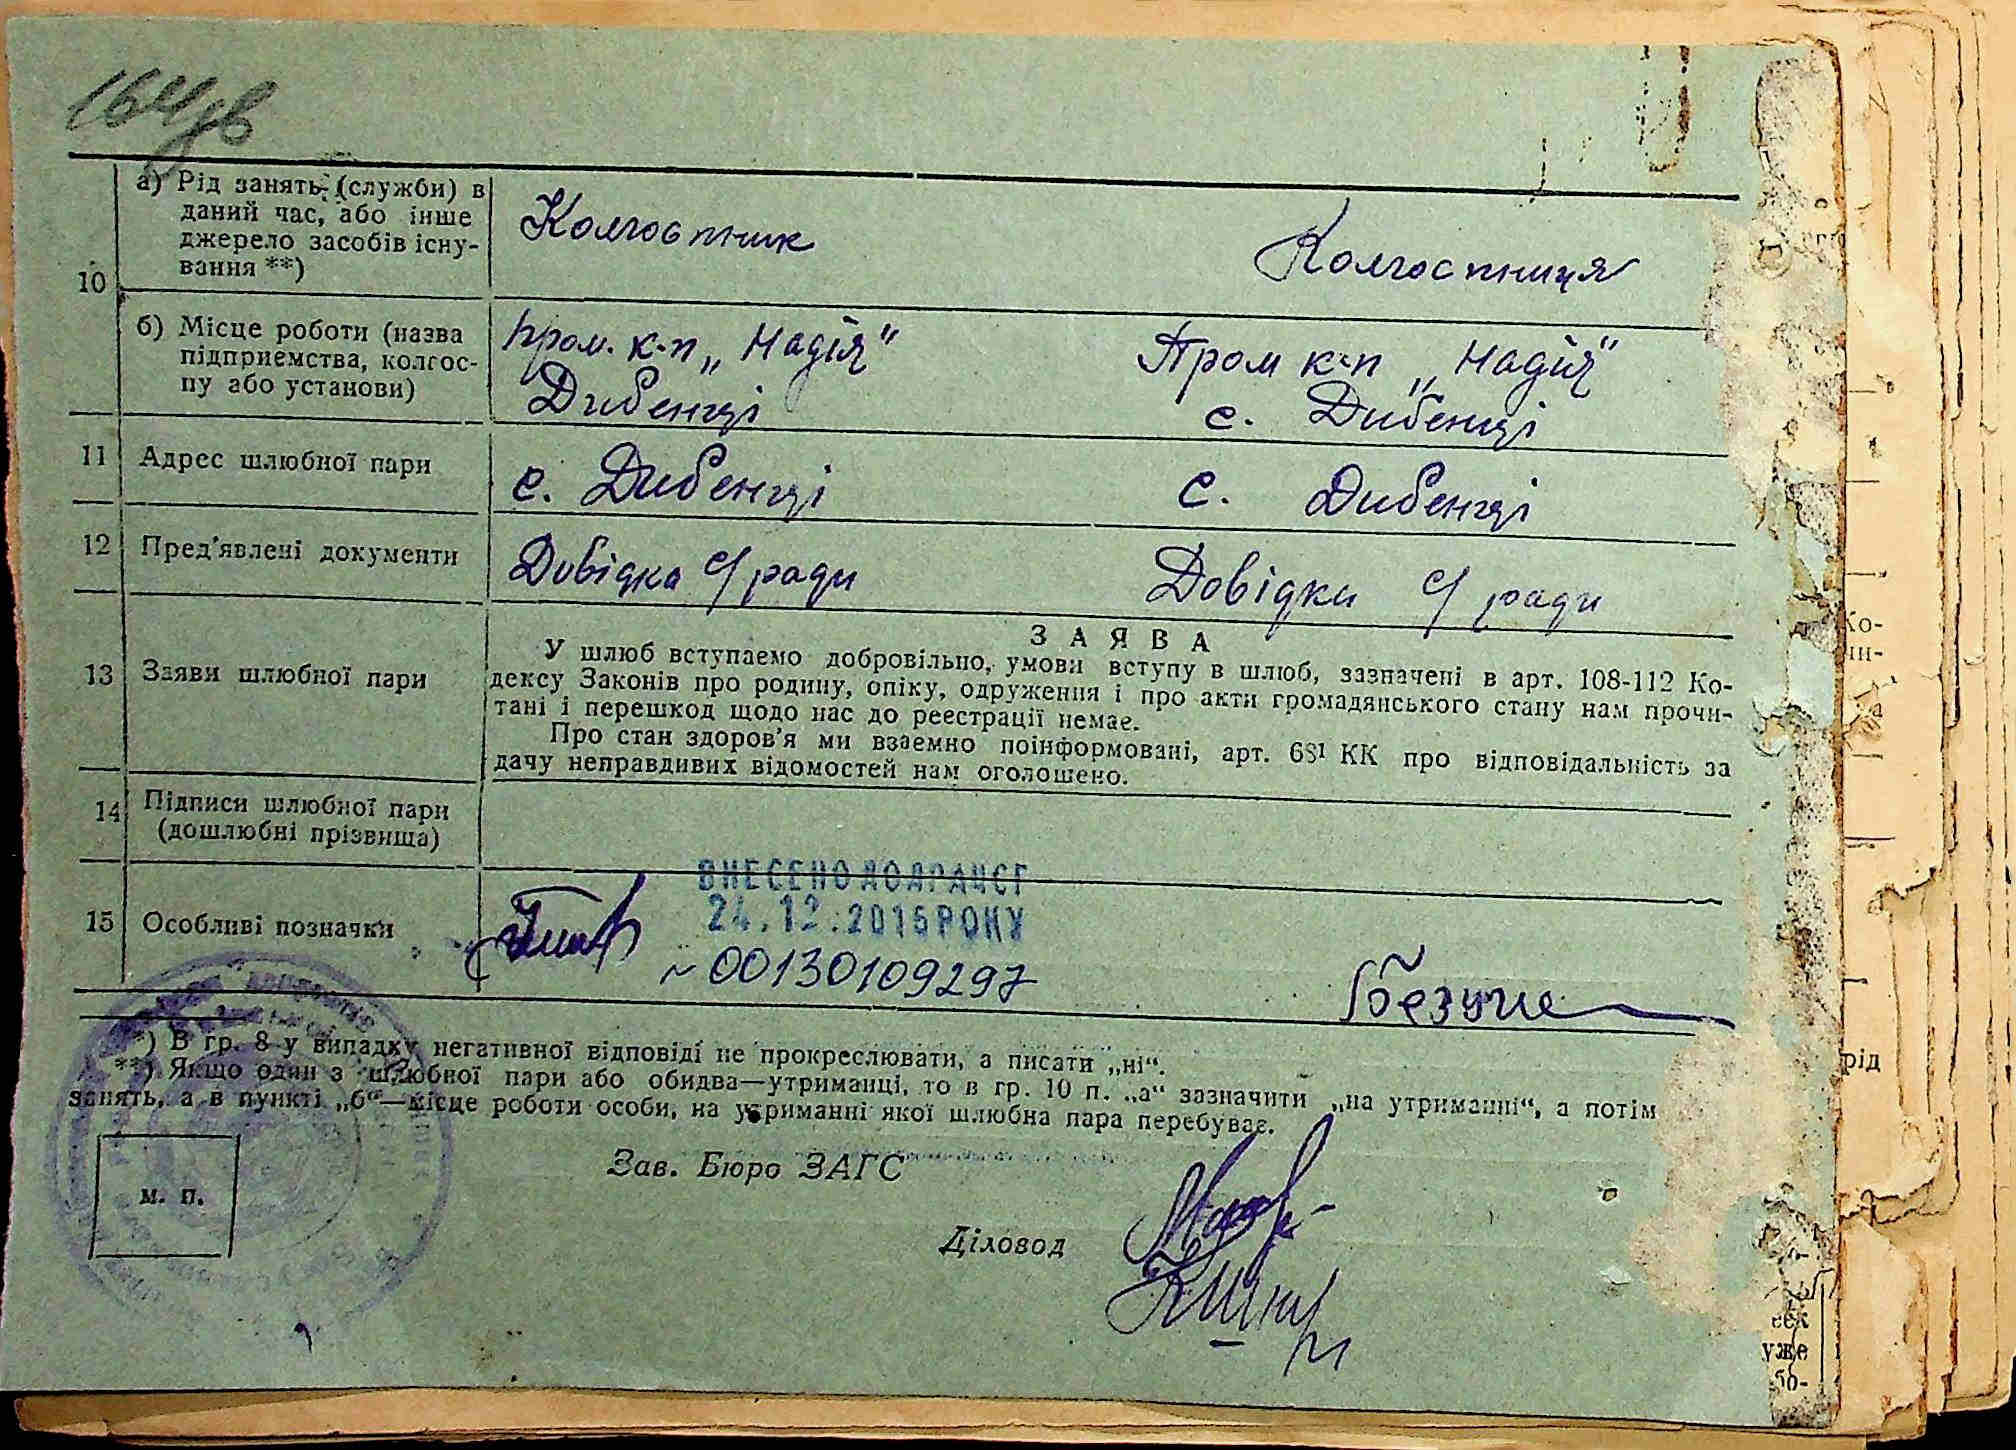 164 зв
а) Рід занять (служби) в
даний час, або інше
джерело засобів існу-
вання **)
Колгоспник
Колгоспниця
10
б) Місце роботи (назва
підприємства, колгос-
пу або установи)
пром. к-п „Надія"
Дибенці
Пром к-п „Надія"
с. Дибенці
11 Адрес шлюбної пари
с. Дибенці
с. Дибенці
12 Пред'явлені документи
Довідка с/ради
Довідка с/ради
13 Заяви шлюбної пари
ЗАЯВА
У шлюб вступаемо добровільно, умови вступу в шлюб, зазначені в арт. 108-112 Ко-
дексу Законів про родину, опіку, одруження і про акти громадянського стану нам прочи-
тані і перешкод щодо нас до реестрації немає.
Про стан здоров'я ми взаемно поінформовані, арт. 68¹ КК про відповідальність за
дачу неправдивих відомостей нам оголошено.
14 Підписи шлюбної пари
(дошлюбні прізвища)
15 Особливі позначки
ВНЕСЕНО ДО ДРАЦСГ
24.12.2015 РОКУ
~00130109297
*) В гр. 8 у випадку негативної відповіді не прокреслювати, а писати „ні“.
**) Якщо один з шлюбної пари або обидва—утриманці, то в гр. 10 п. „а“ зазначити „на утриманні“, а потім
занять, а в пункті „б“—місце роботи особи, на утриманні якої шлюбна пара перебуває.
м. п.
Зав. Бюро ЗАГС
Діловод
Ко-
чи-
рід
уже